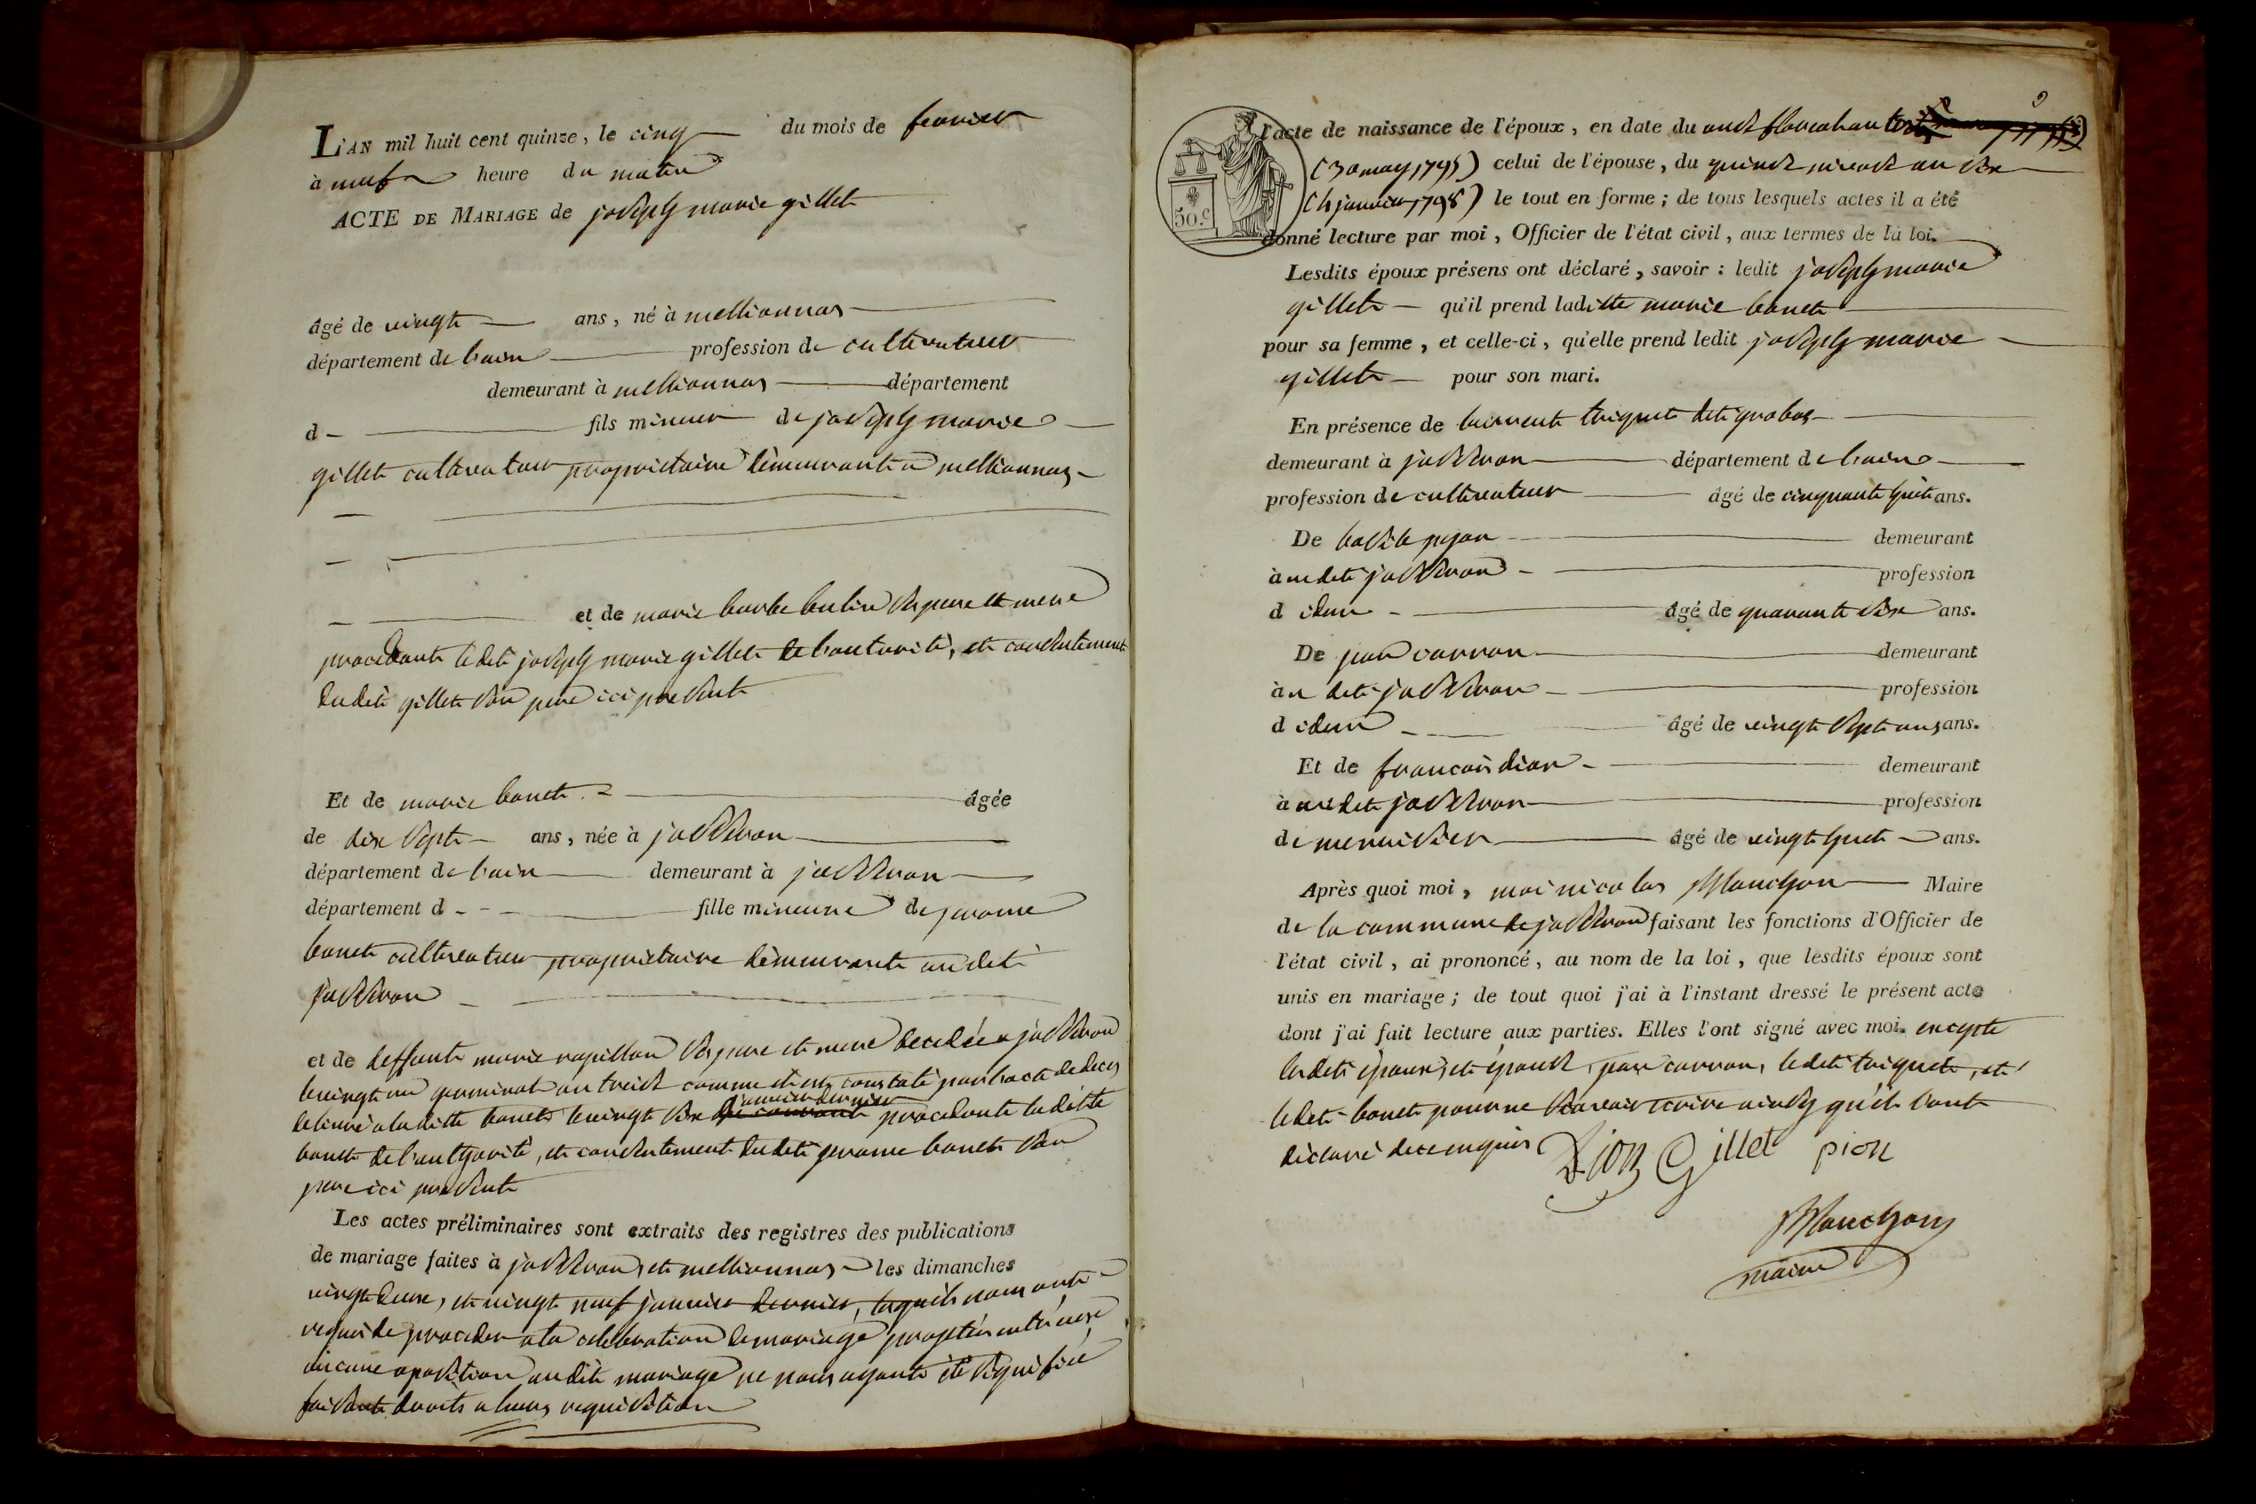 L'AN mil huit cent quinze, le cinq du mois de fevrier
à neuf heure du matin
ACTE DE MARIAGE de joseph marie gillet
âgé de vingt ans, né à mellionnas
département de l'ain profession de cultivateur
demeurant à mellionnas département
d fils mineur de joseph marie
gillet cultivateur proprietaire demeurant a mellionnas
et de marie barbe ses pere et mere
procedant ledit joseph marie gillet de l'autorité, et consentement
dudit gillet son pere ici present
Et de marie bonet âgée
de dix sept ans, née à jasseron
département de l'ain demeurant à jasseron
département d fille mineure de jerome
bonet cultivateur proprietaire demeurant audit
jasseron
et de deffunte marie rapillon ses pere et mere decedée a jasseron
le vingt un germinal an treize comme il est constaté par l'acte de deces
delivré a la ditte bonet le vingt six janvier dernier procedante laditte
bonet de l'authorité, et consentement dudit jerome bonet son
pere ici present
Les actes préliminaires sont extraits des registres des publications
de mariage faites à jasseron, et mellionnas les dimanches
vingt deux, et vingt neuf janvier dernier, lesquels nous ont
requis de proceder a la celebration de mariage projetté entre eux
aucune oposition audit mariage ne nous ayant été signifiée
faisant droits a leurs requisition
9
l'acte de naissance de l'époux, en date du onze floreal an trois
(30 may 1795) celui de l'épouse, du quinze nivose an six
(4 janvier 1798) le tout en forme; de tous lesquels actes il a été
donné lecture par moi, Officier de l'état civil, aux termes de la loi.
50 c.
Lesdits époux présens ont déclaré, savoir : ledit joseph marie
gillet qu'il prend laditte marie bonet
pour sa femme, et celle-ci, qu'elle prend ledit joseph marie
gillet pour son mari.
En présence de laurent triquet dit grobas
demeurant à jasseron département de l'ain
profession de cultivateur âgé de cinquante huit ans.
De basile pion demeurant
à udit jasseron profession
d idem âgé de quarante six ans.
De jean carron demeurant
à u dit jasseron profession
d idem âgé de vingt sept ans ans.
Et de francois dion demeurant
à udit jasseron profession
de menuisier âgé de vingt huit ans.
Après quoi moi, moi nicolas Manchon Maire
de la commune de jasseron faisant les fonctions d'Officier de
l'état civil, ai prononcé, au nom de la loi, que lesdits époux sont
unis en mariage; de tout quoi j'ai à l'instant dressé le présent acte
dont j'ai fait lecture aux parties. Elles l'ont signé avec moi. excepté
lesdits époux, et épouse, jean carron, ledit triquet, et
ledit bonet pour ne scavoir ecrire ainsy qu'ils l'ont
déclaré de ce enquis Dion Gillet pion
Manchon
maire